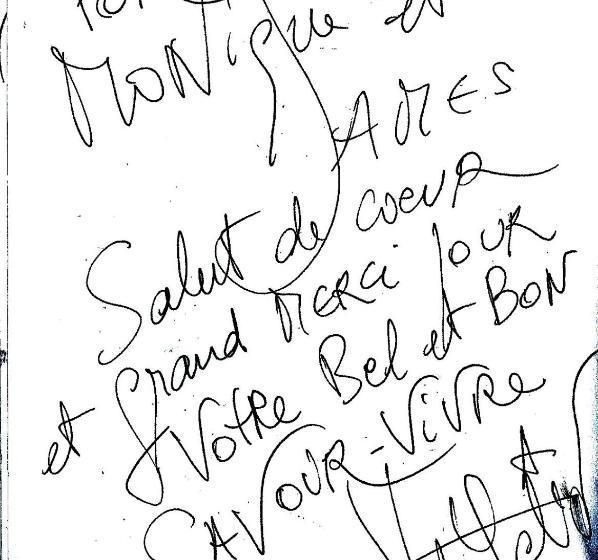 MONique et
JAMES
Salut de coeur
et Grand MERCi pour
Votre Bel et BON
SAVOIR-ViVRe